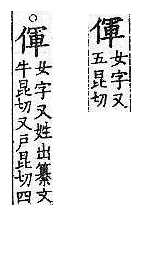 㑮女字又
五昆切
○㑮女字又姓出纂文
牛昆切又戸昆切四